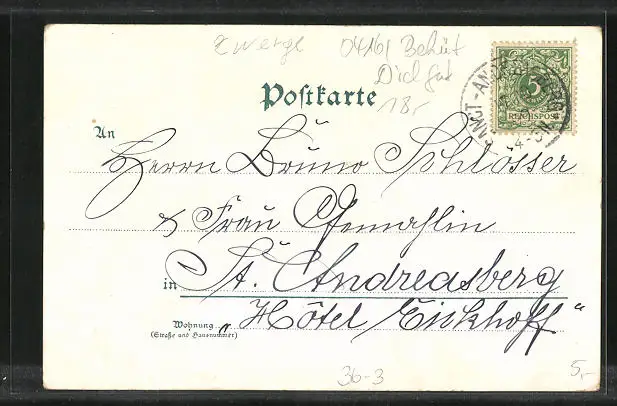 Zwerge 04161 Behüt
Dich Gott
18,-
Postkarte
5
REICHSPOST
SANCT-ANDREASBERG
An Herrn Bruno Schlösser
& Frau Gemahlin
in St. Andreasberg
Wohnung „Hôtel Eickhoff“
(Straße und Hausnummer)
36-3
5,-